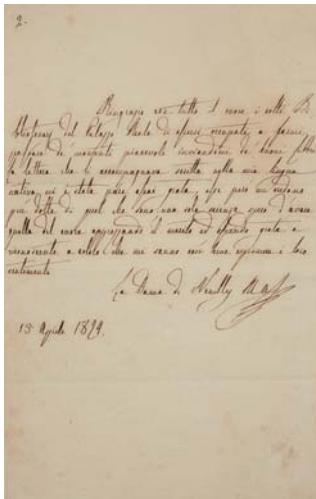 2.
Ringrazio con tutto il cuore i colti Bi
bliotecarj del Palazzo Reale di essersi occupati a farmi
passare de' momenti piacevoli inviandomi de' buoni libri
la lettera che li accompagnava scritta nella mia lingua
nativa, mi è stata pure assai grata, essi però mi credono
più dotta di quel che sono una sola scienza spero d'avere
quella del cuore apprezzando il merito ed essendo grata e
riconoscente a coloro che mi sanno così bene esprimere i loro
sentimenti
La Dama di Neuilly
15 Aprile 1842.